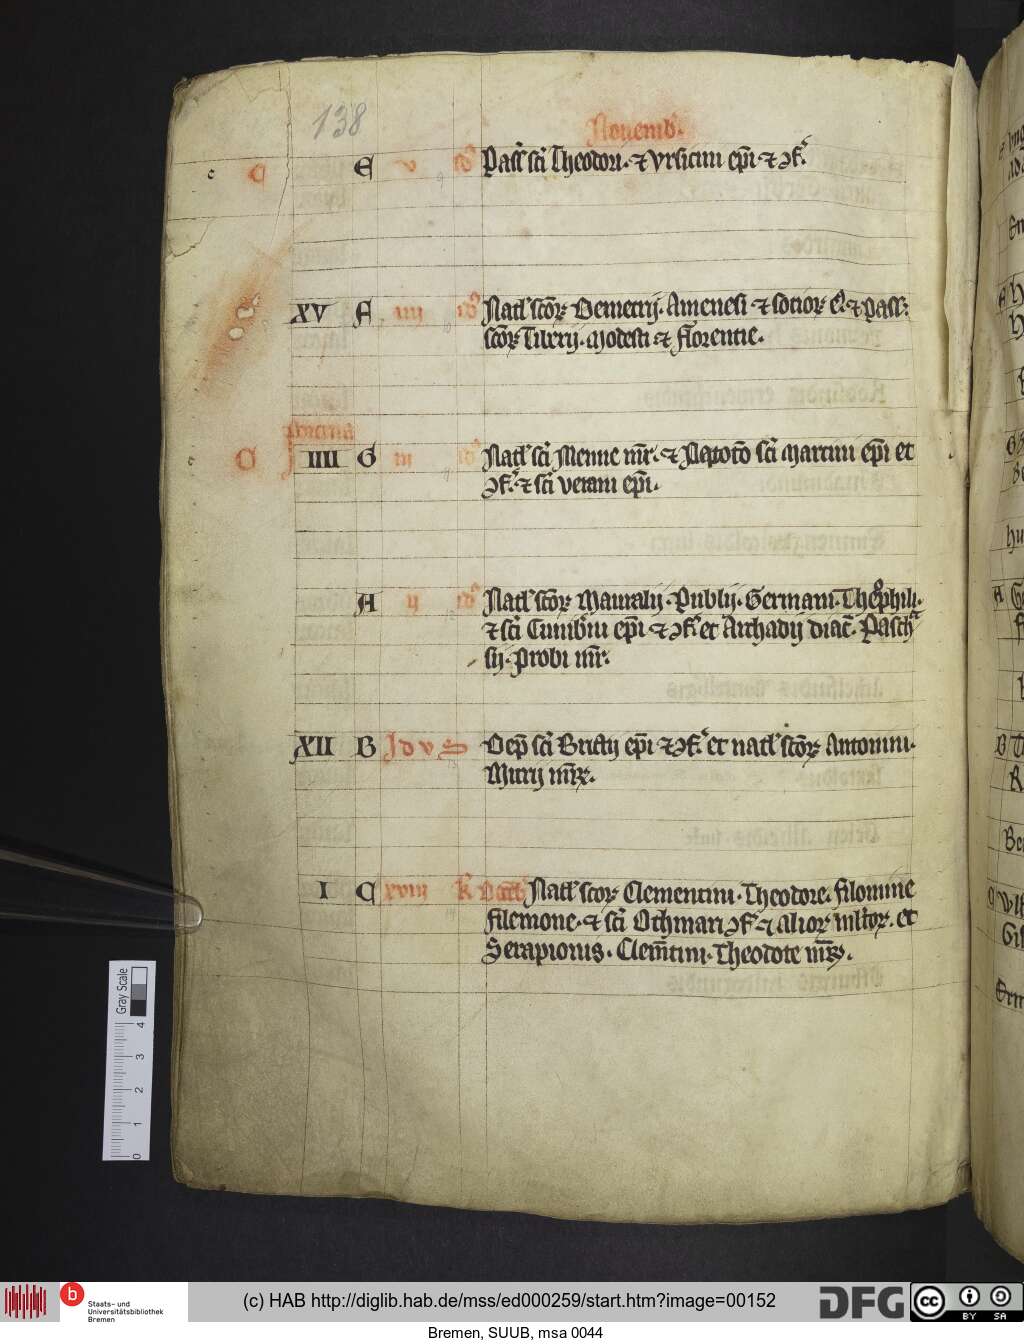 138
Nouemb.
c C E v id᷒ Pass̄ sc̄i Theodori. ⁊ Vrsicini ep̄i ⁊ ɔf̄.
XV F iiij id᷒ Natl᷒ sc̄oꝝ Demetrij. Ameuesi ⁊ socioꝝ ei᷒ ⁊ pass̄
sc̄oꝝ Tiberij. Modesti ⁊ florentie.
c C IIII G iij id᷒ Natl᷒ sc̄i Menne mr̄. ⁊ Deposico sc̄i Martini ep̄i et
ɔf̄. ⁊ sc̄i verani ep̄i.
A ij id᷒ Natl᷒ sc̄oꝝ Publij. Germani. Theophili.
⁊ sc̄i Cuniberti ep̄i ⁊ ɔf̄ et Archadij diac̄. Pascha
sij. Probi mr̄.
XII B Jdvs Dep̄ sc̄i Brictij ep̄i ⁊ ɔf̄ et natl᷒ sc̄oꝝ Antonini.
Mitrij mr̄ꝝ.
I C xviij k̄ Natl᷒ sc̄oꝝ Clementini. Theodore. filomine
filemone. ⁊ sc̄i Othmari ɔf̄ ⁊ alioꝝ mltoꝝ. et
Serapionis. Clem̄tini. Theodote mr̄ꝝ.
Gray Scale
4
3
2
1
0
b Staats- und
Universitätsbibliothek
Bremen
(c) HAB http://diglib.hab.de/mss/ed000259/start.htm?image=00152
DFG
cc BY SA
Bremen, SUUB, msa 0044